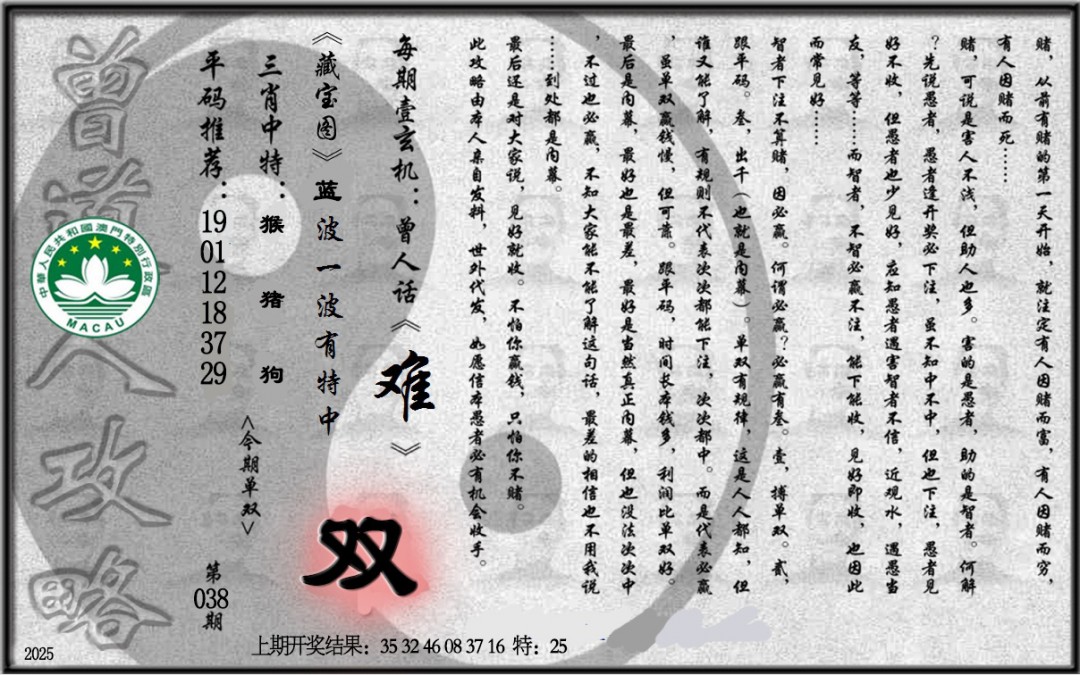 赌，从前有赌的第一天开始，就注定有人因赌而富，有人因赌而穷，
有人因赌而死……
赌，可说是害人不浅，但助人也多。害的是愚者，助的是智者。何解
？先说愚者，愚者逢开奖必下注，虽不知中不中，但也下注，愚者见
好不收，但愚者也少见好，应知愚者遇害智者不信，近观水，遇愚当
友，等等……而智者，不智必赢不注，能下能收，见好即收，也因此
而常见好……
智者下注不算赌，因必赢。何谓必赢？必赢有叁。壹，搏单双。贰，
跟平码。叁，出千（也就是内幕）。单双有规律，这是人人都知，但
谁又能了解，有规则不代表次次都能下注，次次都中。而是代表必赢
，虽单双赢钱慢，但可靠。跟平码，时间长本钱多，利润比单双好。
最后是内幕，最好也是最差，最好是当然真正内幕，但也没法次次中
，不过也必赢，不知大家能不能了解这句话，最差的相信也不用我说
……到处都是内幕。
最后还是对大家说，见好就收。不怕你赢钱，只怕你不赌。
此攻略由本人亲自发料，世外代发，如愿信本愚者必有机会收手。
每期壹玄机：曾人话《难》
《藏宝图》蓝波一波有特中
双
三肖中特：猴 猪 狗
<今期单双>
平码推荐：19 01 12 18 37 29
第038期
曾道人攻略
中華人民共和國澳門特別行政區
MACAU
2025
上期开奖结果：35 32 46 08 37 16 特：25